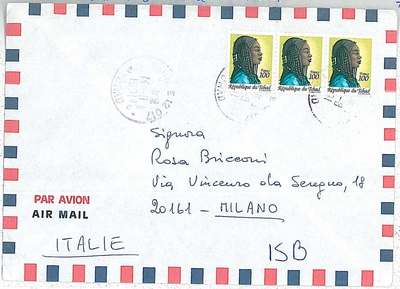 100 100 100
République du Tchad République du Tchad République du Tchad
Signora
Rosa Bricconi
Via Vincenzo da Seregno, 18
20161 - MILANO
PAR AVION
AIR MAIL
ITALIE
ISB